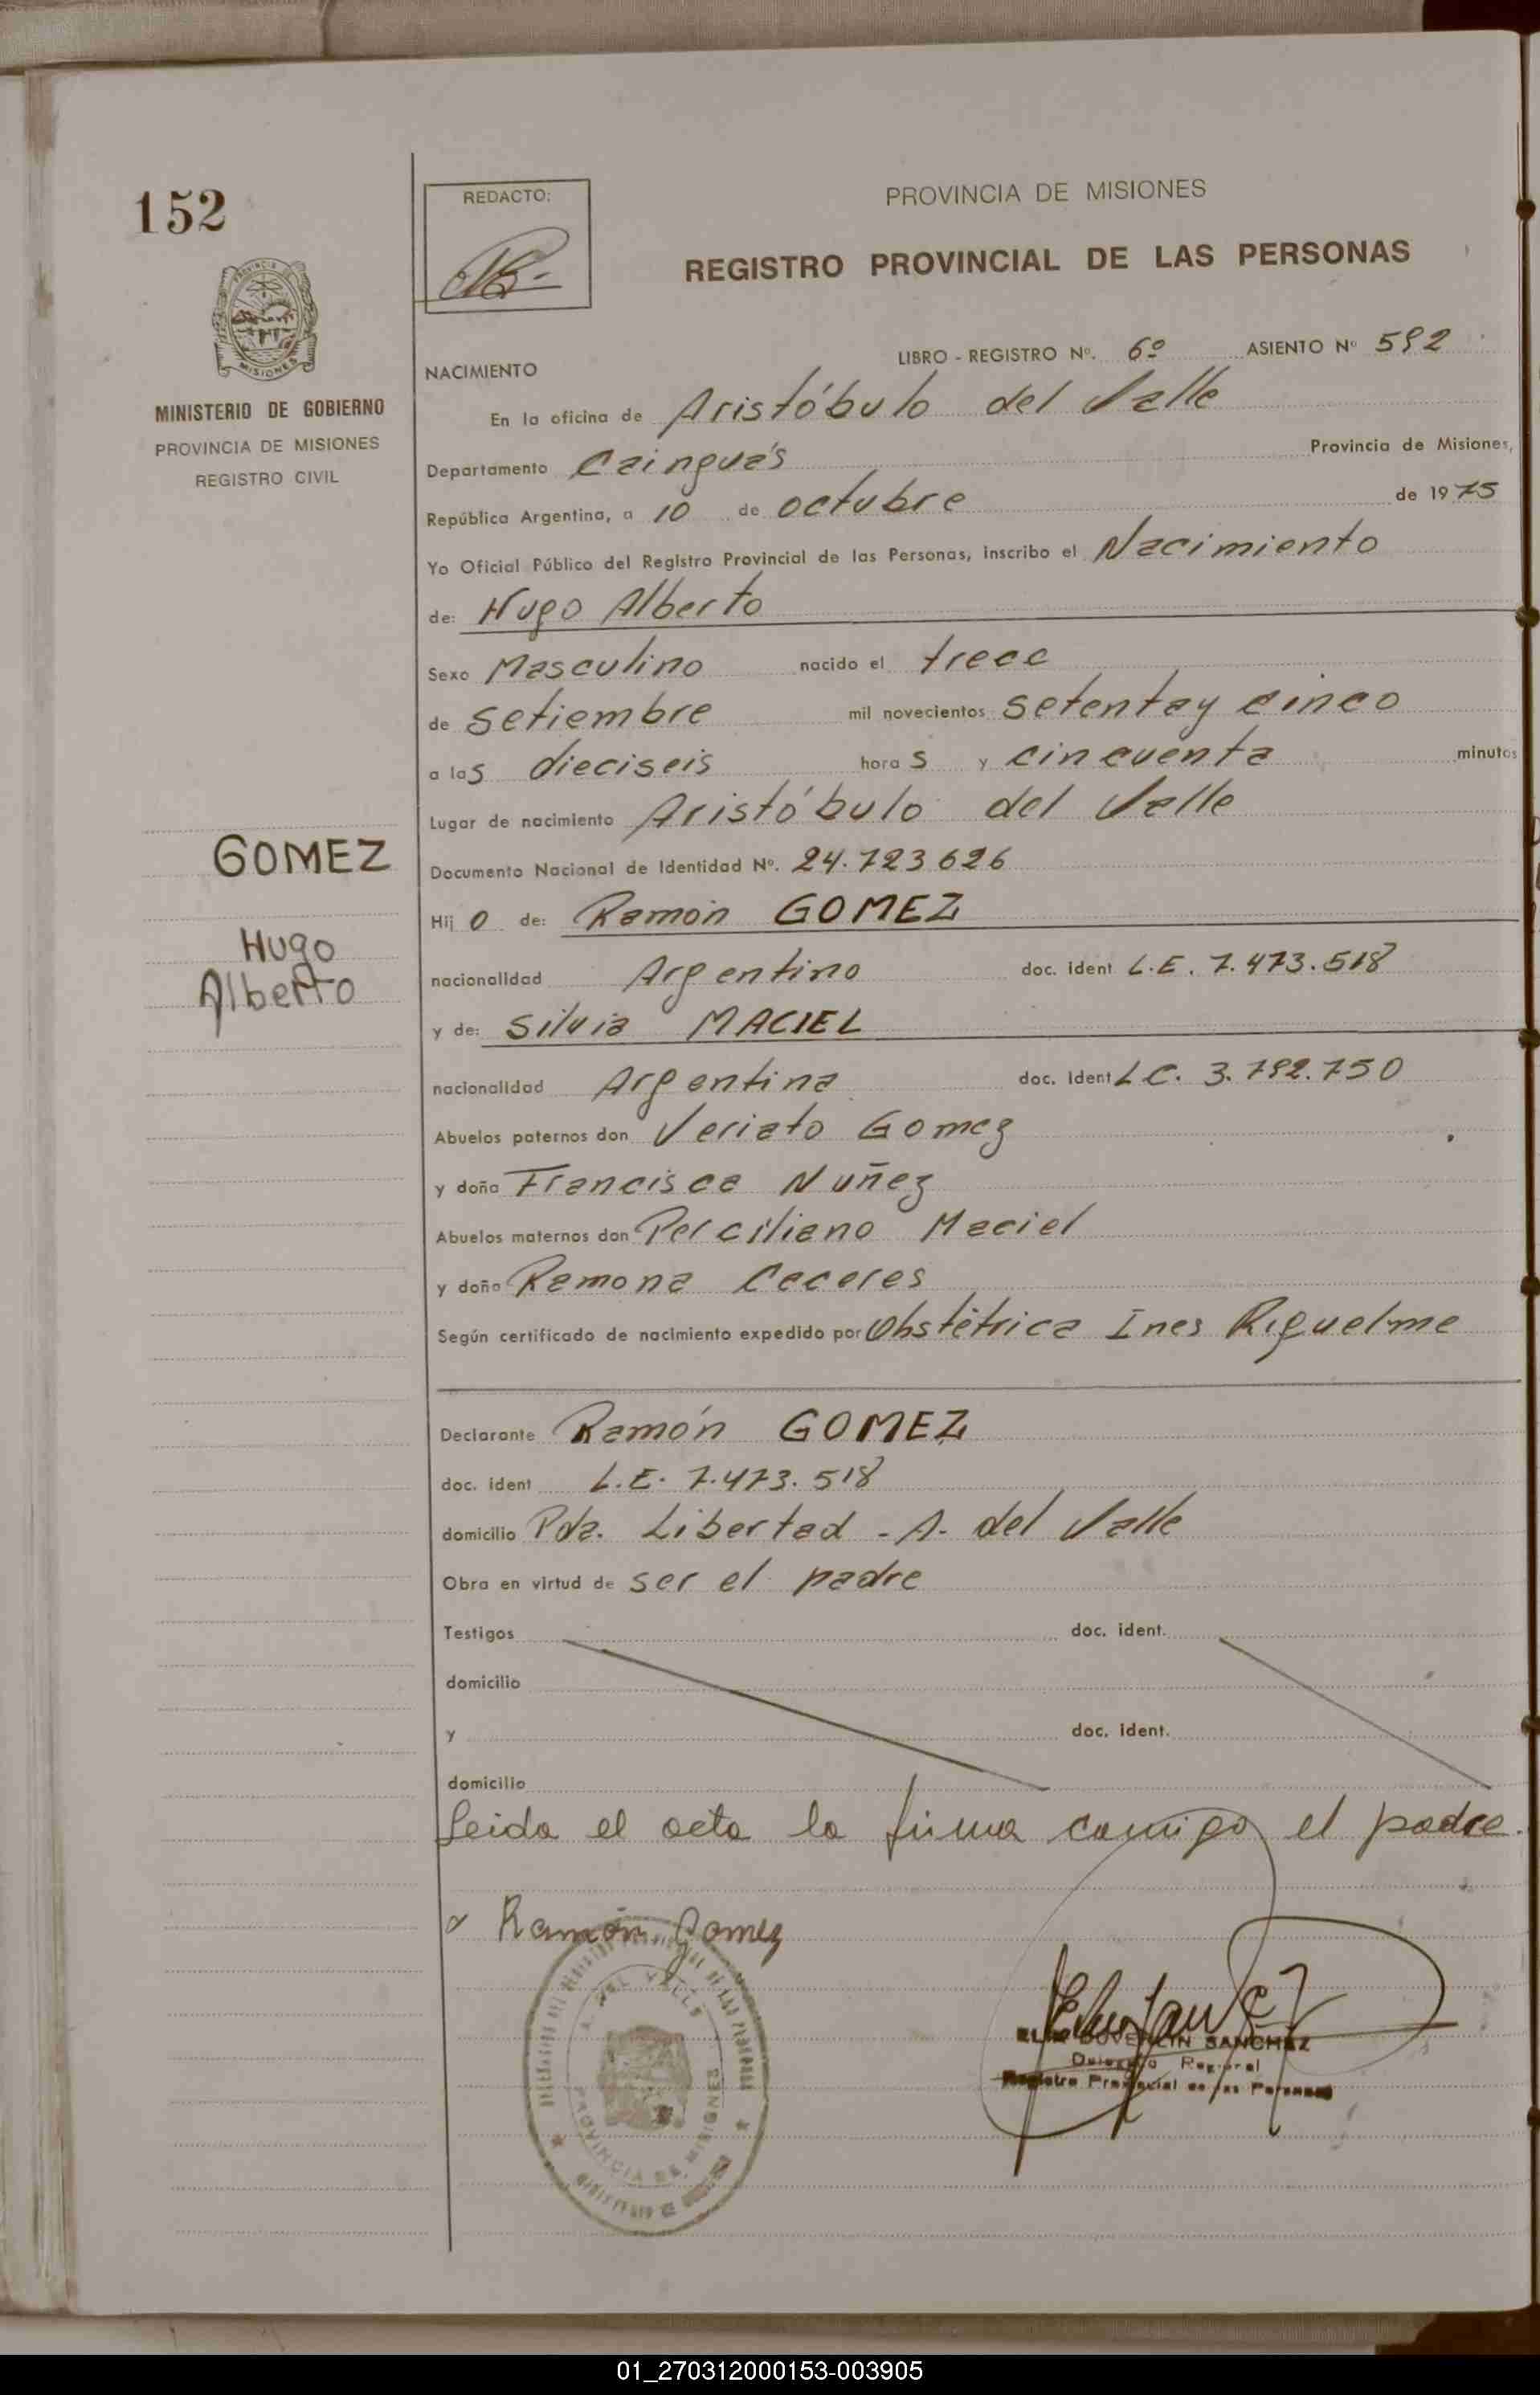 152
REDACTO:
PROVINCIA DE MISIONES
REGISTRO PROVINCIAL DE LAS PERSONAS
MINISTERIO DE GOBIERNO
PROVINCIA DE MISIONES
REGISTRO CIVIL
LIBRO - REGISTRO Nº. 6º ASIENTO Nº 592
NACIMIENTO
En la oficina de Aristóbulo del Valle
Departamento Cainguás Provincia de Misiones,
República Argentina, a 10 de octubre de 1975
Yo Oficial Público del Registro Provincial de las Personas, inscribo el Nacimiento
de: Hugo Alberto
Sexo Masculino nacido el trece
de setiembre mil novecientos setenta y cinco
a las dieciseis horas y cincuenta minutos
Lugar de nacimiento Aristóbulo del Valle
GOMEZ
Hugo
Alberto
Documento Nacional de Identidad Nº. 24.723626
Hijo de: Ramón GOMEZ
nacionalidad Argentino doc. ident L.E. 7.473.518
y de: Silvia MACIEL
nacionalidad Argentina doc. ident L.C. 3.792.750
Abuelos paternos don Veriato Gomez
y doña Francisca Nuñez
Abuelos maternos don Perciliano Maciel
y doña Ramona Caceres
Según certificado de nacimiento expedido por Obstétrica Ines Riquelme
Declarante Ramón GOMEZ
doc. ident L.E. 7.473.518
domicilio Pda. Libertad - A. del Valle
Obra en virtud de ser el padre
Testigos doc. ident.
domicilio
y doc. ident.
domicilio
Leida el acta la firma conmigo el padre.
Ramón Gomez
SANCHEZ
Delegado Regional
Registro Provincial de las Personas
PROVINCIA DE MISIONES
01_270312000153-003905